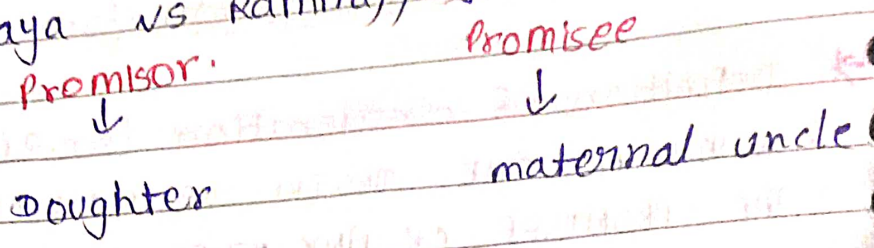 aya vs
Promisor. Promisee
↓ ↓
Doughter maternal uncle